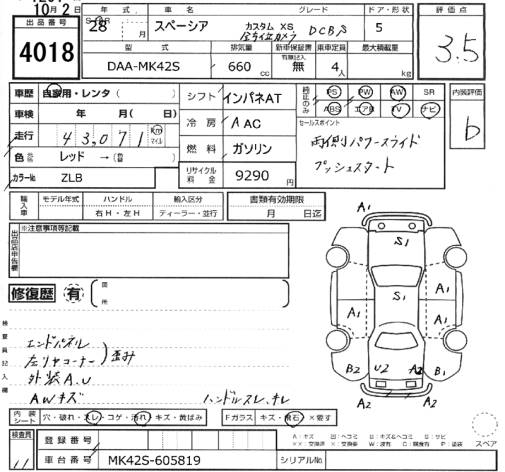 10月2日
出品番号
4018
年式 車名 グレード ドア・形状 評価点
28 月 スペーシア カスタム XS 5 3.5
全方位カメラ DCBS
型式 排気量 新車保証書 乗車定員 最大積載量
有無記入
DAA-MK42S 660 cc 無 4人 kg
車歴 自家用・レンタ( )
車検 年 月( 日)
走行 43,071 km マイル
色 レッド →( )
カラーNo ZLB
シフト インパネAT
冷房 AAC
燃料 ガソリン
リサイクル料金 9290円
純正のみ PS PW AW SR
ABS エアB TV ナビ
セールスポイント
両側パワースライド
プッシュスタート
内装評価
b
輸入車 モデル年式 ハンドル 輸入区分
右H・左H ディーラー・並行
書類有効期限
月 日迄
出品店申告欄 ※注意事項等記載
修復歴 有 箇所
検査員記入欄
エンドパネル
左リヤコーナー 歪み
外装A.U
AWキズ
ハンドルスレ、テレ
A1
S1
S1
A1 A1
B2 U2 A2 B1
A2 A2
内装シート 穴・破れ・スレ・コゲ・汚れ・キズ・黄ばみ
Fガラス キズ・飛石・×要す
A:キズ U:凹ミ B:キズ&凹ミ S:サビ
スペア
検査員
11
登録番号
車台番号 MK42S-605819 シリアルNo